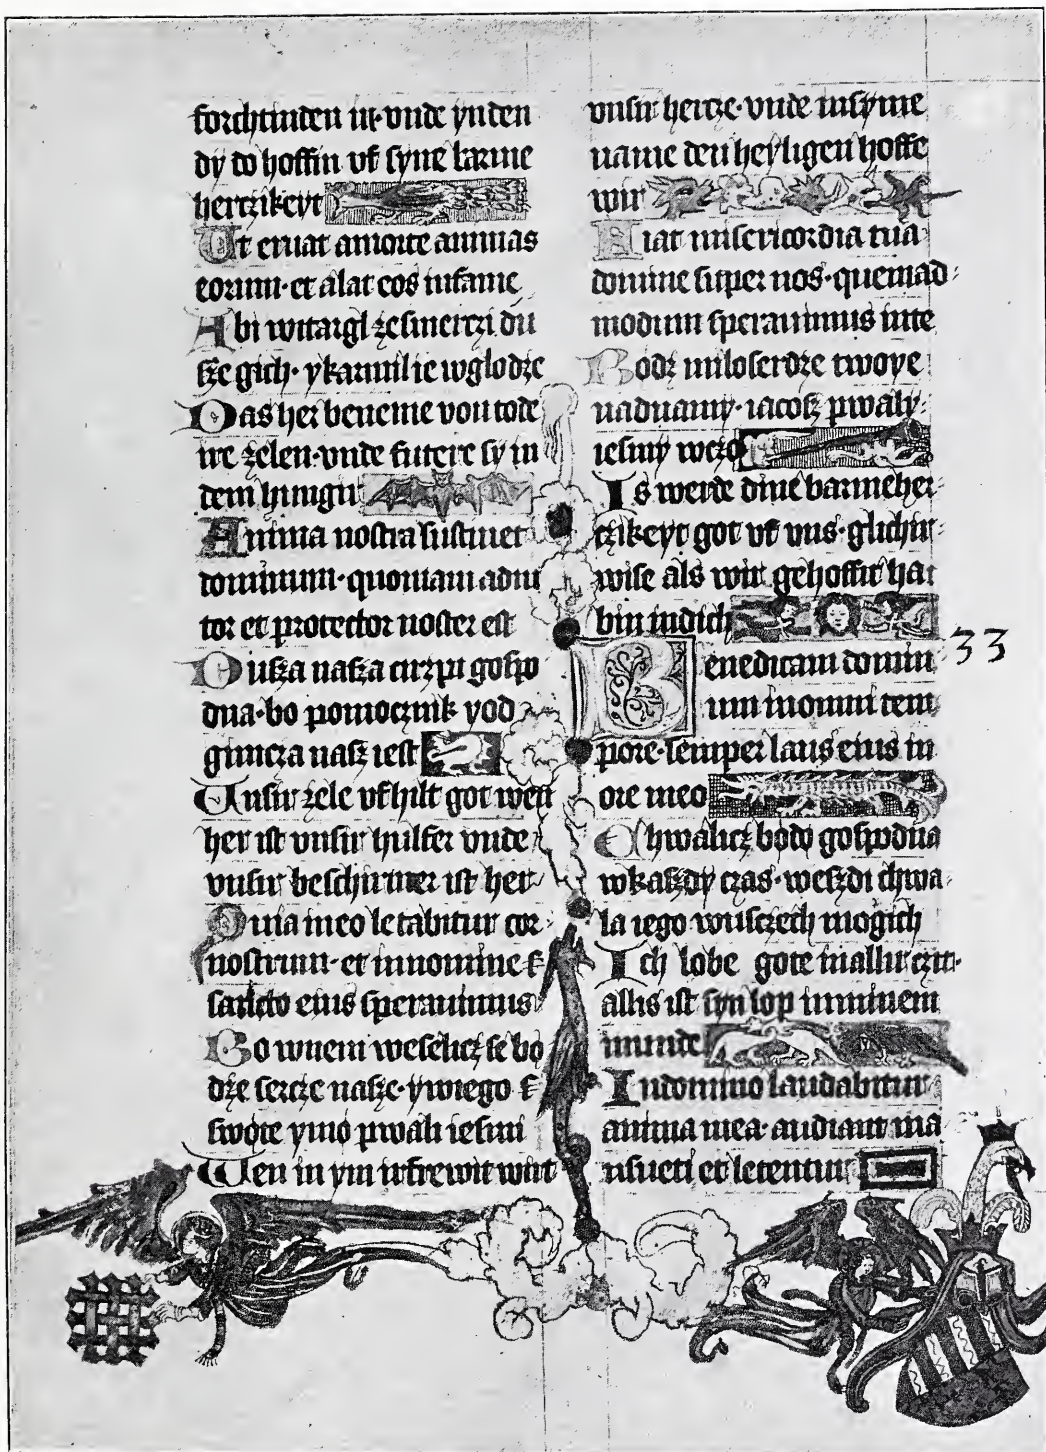 forchtinden in· vnde ynden
dy do hoffin vf syne barme
hertzikeyt
Ut eruat amorte animas
eorum· et alat eos infame
Abi witargl zesmertzi du
sze gich· ykarmil ie wglodze
Das her beneme von tode
ire zelen· vnde futere sy in
dem hungir
Anima nostra sustinet
dominum· quoniam adiu
tor et protector noster est
Dusza nasza cirzpi gospo
dna· bo pomocznik yod
gimcza nasz iest
Unsir zele vf hilt got wen
her ist vnsir hulfer vnde
vnsir beschirmer ist her
Quia ineo letabitur cor
nostrum· et innomine s
sancto eius sperauimus
Bo wnem weselicz se bo
dze sercze nasze· ywiego s
swote ymo pwali iesmi
Wen in ym irfrewit wirt
vnsir hertze· vnde insyme
name den heyligen hoffe
wir
Fiat misericordia tua
domine super nos· quemad
modum sperauimus inte
Bodz miloserdze twoye
nadnamy· iacosz pwaly
iesmy wczo
Is werde dine barmeher
tzikeyt got vf vns· glichir
wise als wir gehoffit ha
bin indich
Benedicam domin 33
um inomni tem
pore· semper laus eius in
ore meo
Chwalicz bodo gospodna
wkaszdy czas· weszdi chwa
la iego wusczech mogich
Ich lobe gote inallir czit·
allis ist syn lop iminem
munde
Indomino laudabitur
anima mea· audiant ma
nsueti et letentur